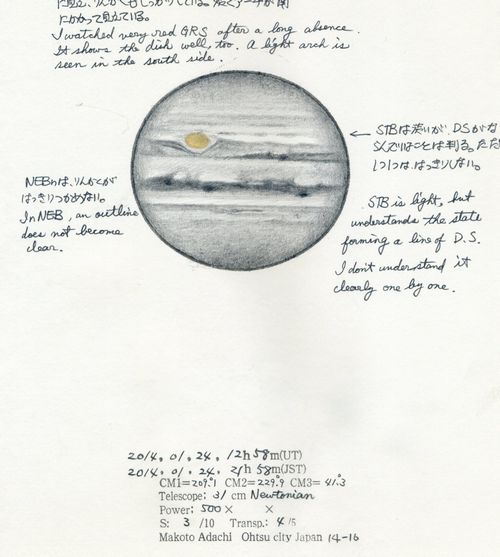 にかかって見えている。
I watched very red GRS after a long absence.
It shows the dish well, too. A light arch is
seen in the south side.
← STBは淡いが、DSがな
らんでいることは判る。ただ
1つ1つは、はっきりしない。
STB is light, but
understands the state
forming a line of D.S.
I don't understand it
clearly one by one.
NEBnは、りんかくが
はっきりつかめない。
In NEB, an outline
does not become
clear.
2014. 01. 24. 12h 58m(UT)
2014. 01. 24. 21h 58m(JST)
CM1=209.°1 CM2=229.°9 CM3= 41.°3
Telescope: 31 cm Newtonian
Power: 500 × ×
S: 3 /10 Transp.: 4 /5
Makoto Adachi Ohtsu city Japan 14-16